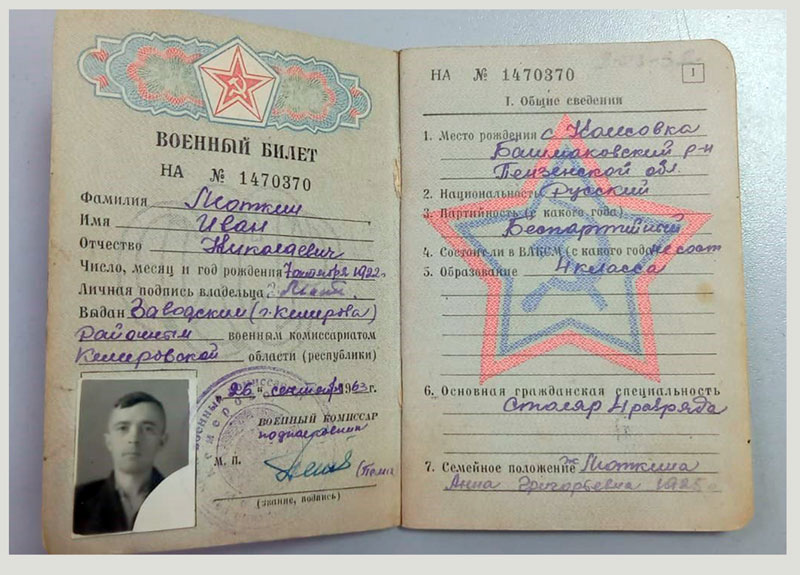 ВОЕННЫЙ БИЛЕТ
НА № 1470370
Фамилия Мюткин
Имя Иван
Отчество Николаевич
Число, месяц и год рождения 1922
Личная подпись владельца
Выдан Заводским (г. Кемерова)
Районным военным комиссариатом
Кемеровской области (республики)
"26" сентября 1963 г.
ВОЕННЫЙ КОМИССАР
подполковник
М. П.
(звание, подпись)
НА № 1470370
1
I. Общие сведения
1. Место рождения с
Башмаковский р-н
Пензенской обл.
2. Национальность русский
3. Партийность (с какого года)
Беспартийный
4. Состоял ли в ВЛКСМ (с какого года) не сост
5. Образование 4 класса
6. Основная гражданская специальность
Столяр 4 разряда
7. Семейное положение Мюткина
Анна Григорьевна 1925